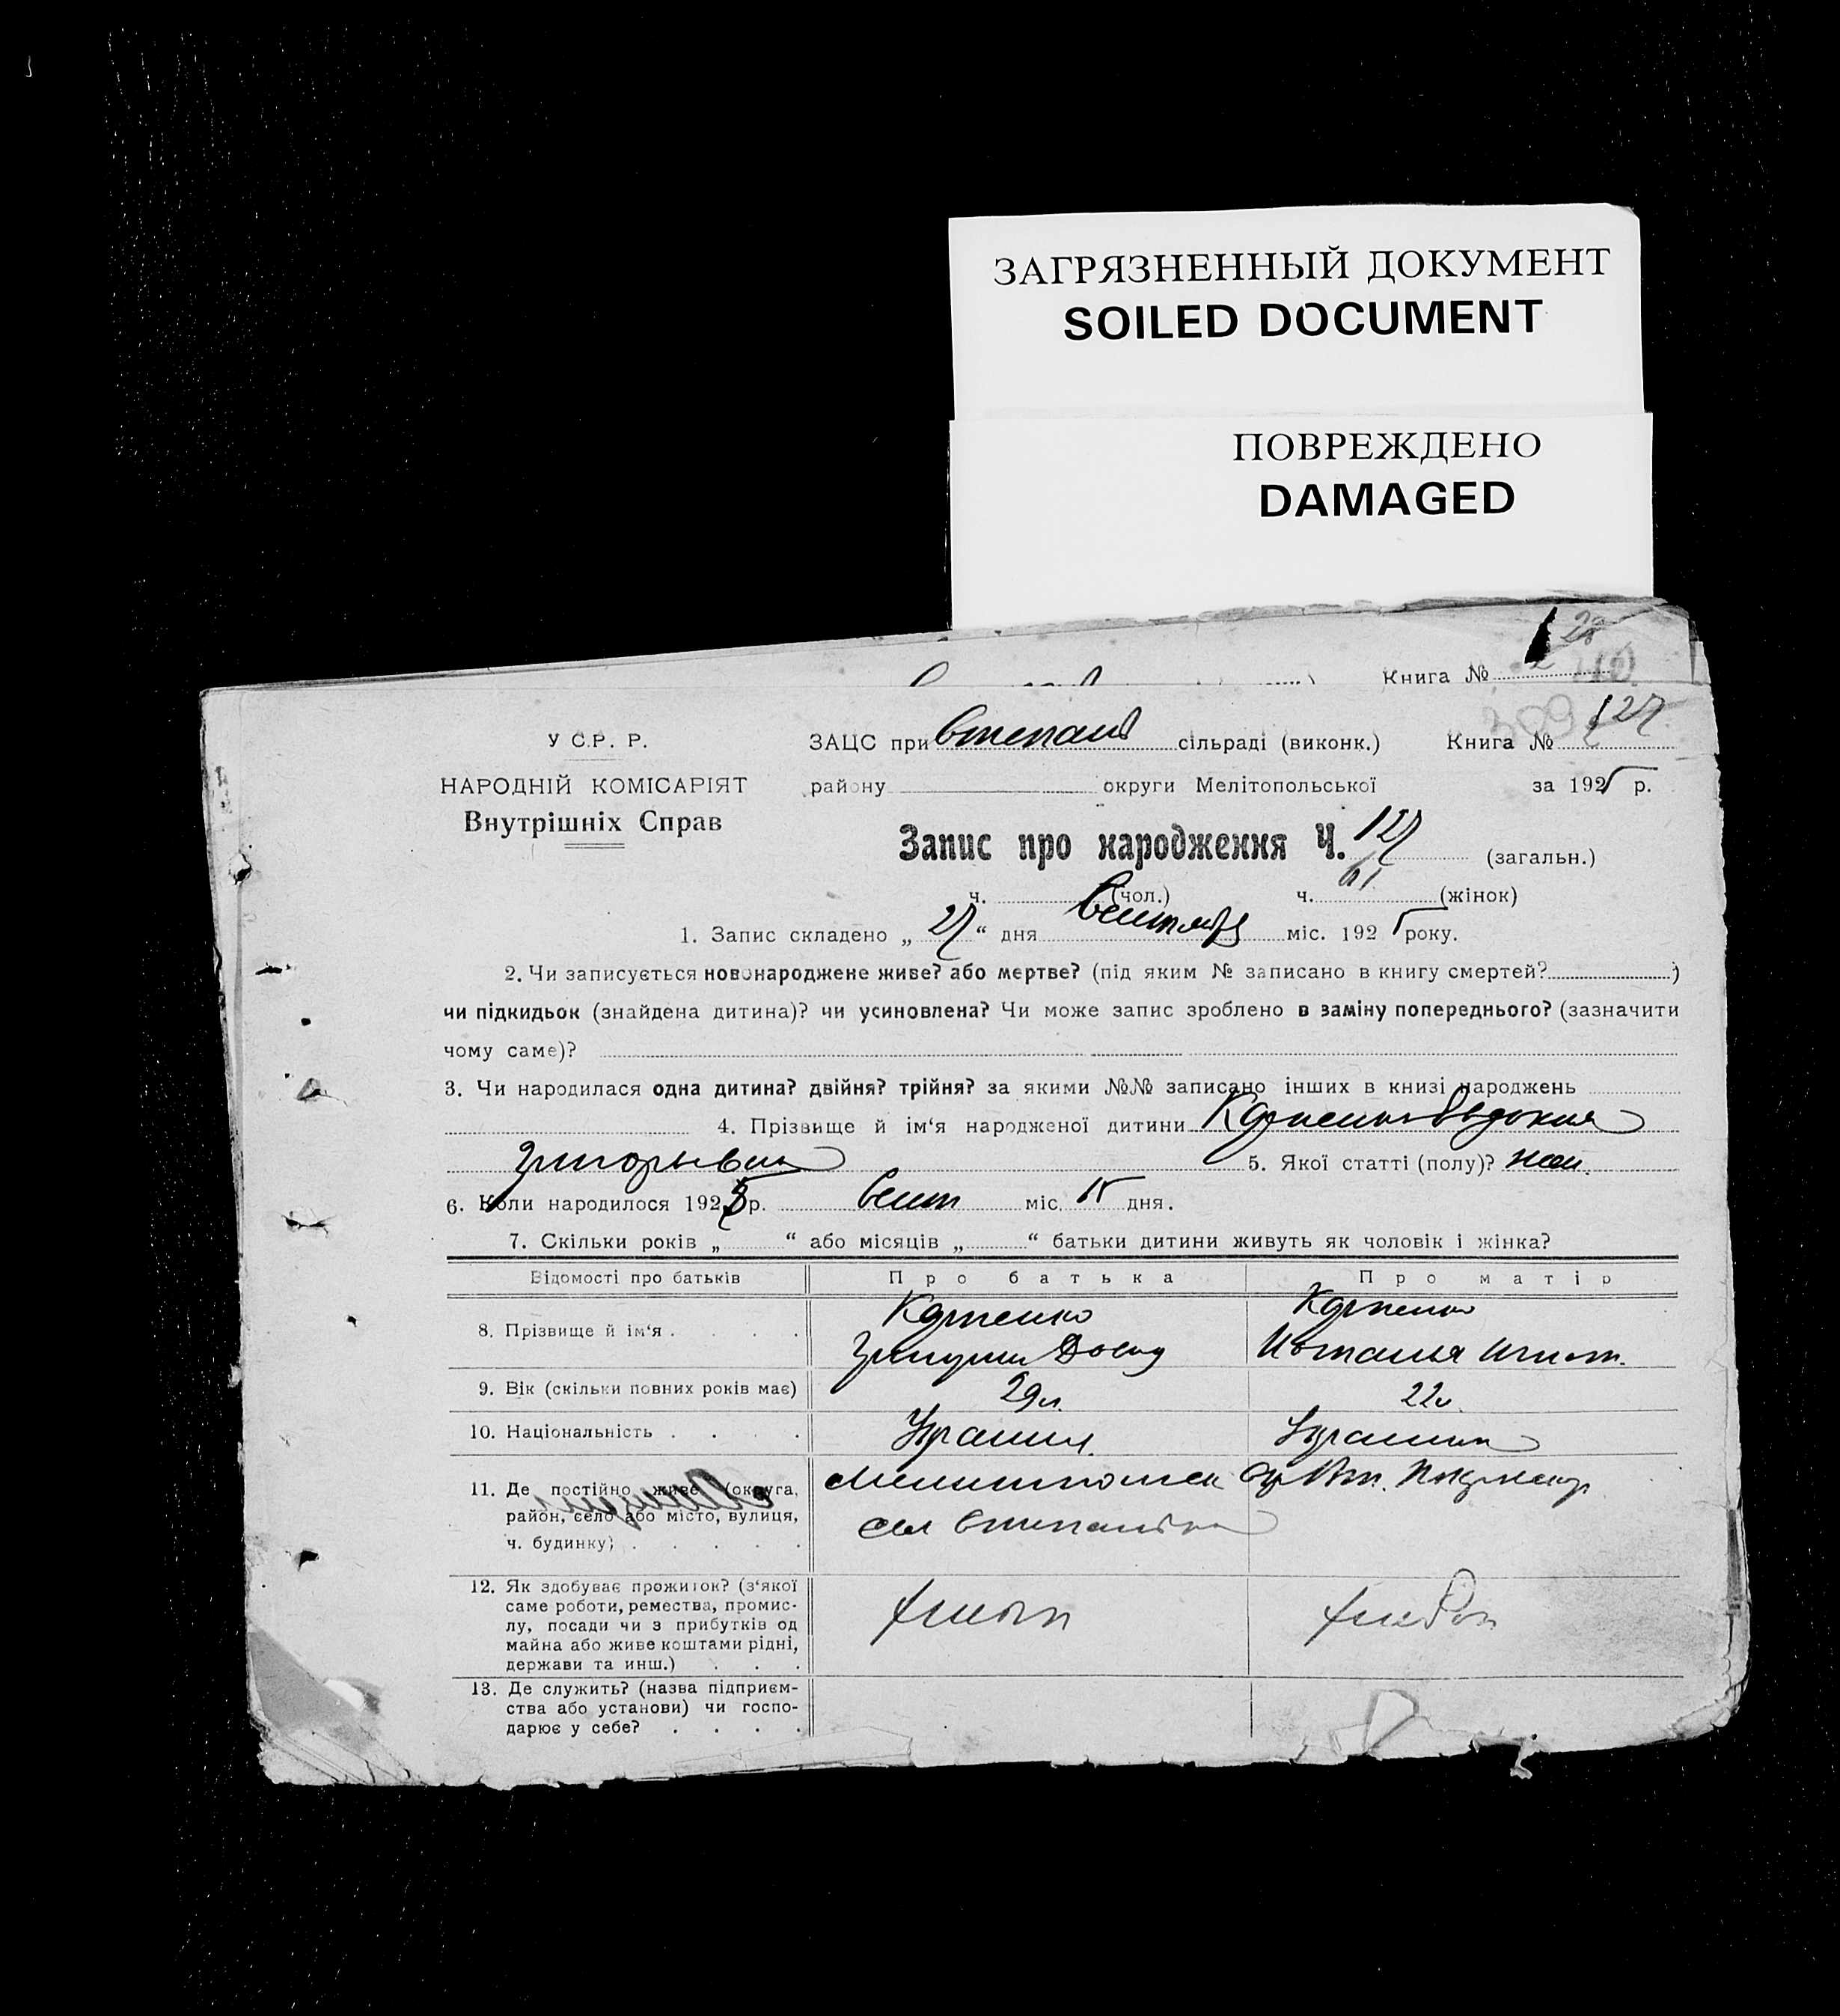 ЗАГРЯЗНЕННЫЙ ДОКУМЕНТ
SOILED DOCUMENT
ПОВРЕЖДЕНО
DAMAGED
Книга №
У С.Р. Р.
ЗАЦС при Степанів сільраді (виконк.) Книга № 127
НАРОДНІЙ КОМІСАРІЯТ
району округи Мелітопольської за 1925 р.
Внутрішніх Справ
Запис про народження Ч. 127 (загальн.)
ч. (чол.) ч. 61 (жінок)
1. Запис складено „27“ дня Сентября міс. 1925 року.
2. Чи записується новонароджене живе? або мертве? (під яким № записано в книгу смертей? )
чи підкидьок (знайдена дитина)? чи усиновлена? Чи може запис зроблено в заміну попереднього? (зазначити
чому саме)?
3. Чи народилася одна дитина? двійня? трійня? за якими №№ записано інших в книзі народжень
4. Прізвище й ім‘я народженої дитини Евдокия
Григорьевна 5. Якої статті (полу)? жен.
6. Коли народилося 1925 р. Сент міс. 15 дня.
7. Скільки років „ “ або місяців „ “ батьки дитини живуть як чоловік і жінка?
Відомості про батьків Про батька Про матір
8. Прізвище й ім‘я
9. Вік (скільки повних років має) 29 л. 22 л.
10. Національність Украин.
11. Де постійно живе (округа,
район, село або місто, вулиця,
ч. будинку)
село Степановка
12. Як здобуває прожиток? (з‘якої
саме роботи, ремества, промис-
лу, посади чи з прибутків од
майна або живе коштами рідні,
держави та инш.) хлебоп хлебоп
13. Де служить? (назва підприєм-
ства або установи) чи госпо-
дарює у себе?